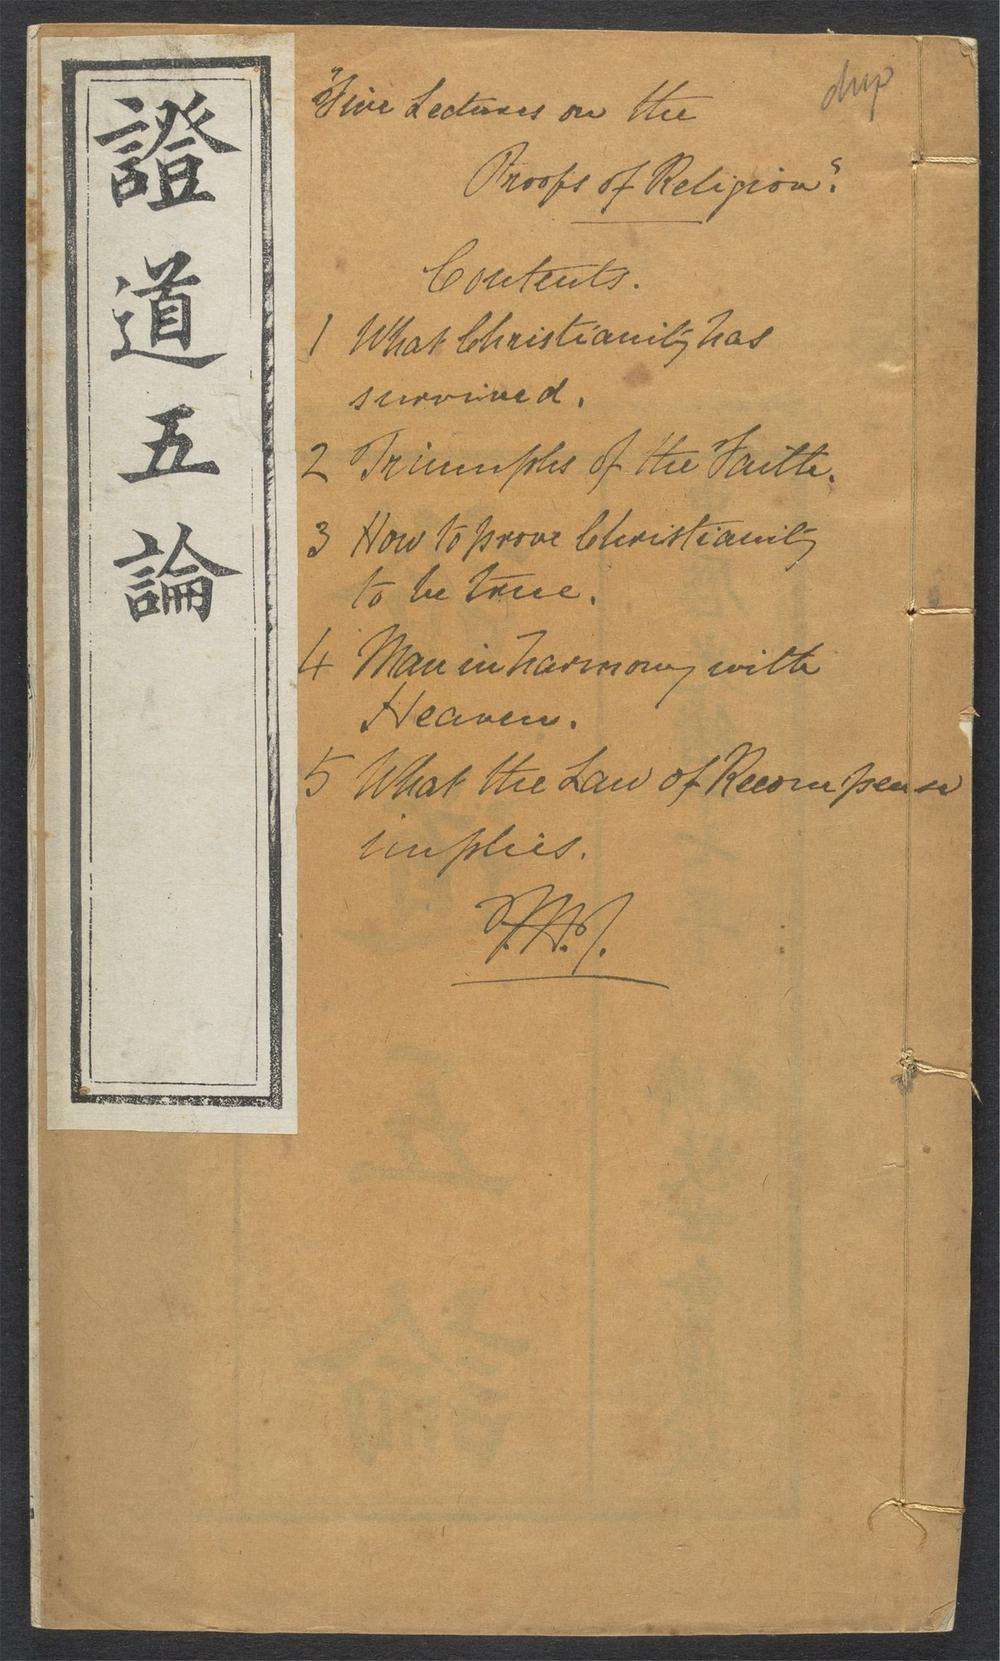 證道五論
dup
"Five Lectures on the
Proofs of Religion".
Contents.
1 What Christianity has
survived.
2 Triumphs of the Faith.
3 How to prove Christianity
to be true.
4 Man in harmony with
Heaven.
5 What the Law of Recompense
implies.